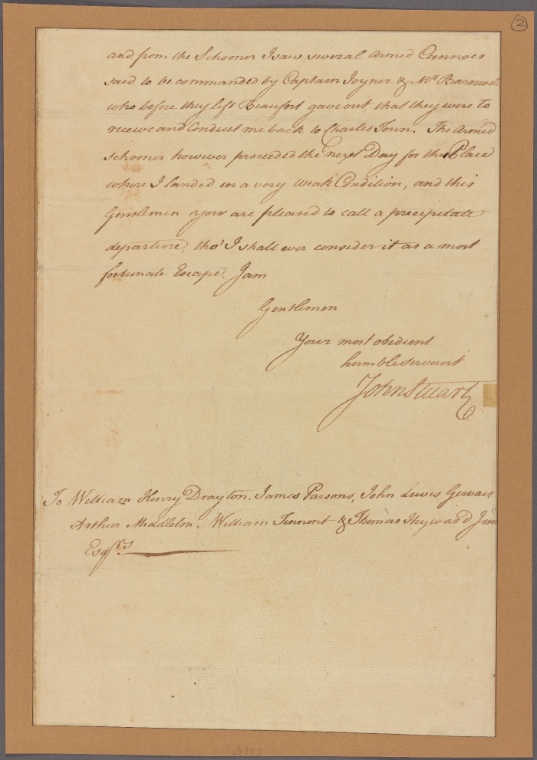 2
and from the Schooner I saw several Armed Cannoes
said to be commanded by Captain Joyner & Mr. Barnwell
who before they left Beaufort gave out that they were to
receive and Conduct me back to Charles Town. The Armed
schooner however proceeded the next Day for the Place
where I landed in a very weak Condition, and this
Gentlemen your are pleased to call a precipitate
departure, tho' I shall ever consider it as a most
fortunate Escape. I am
Gentlemen
Your most obedient
humble servant
John Stuart
To William Henry Drayton, James Parsons, John Lewis Gervais
Arthur Middleton, William Tennent & Thomas Heyward Jun
Esqrs